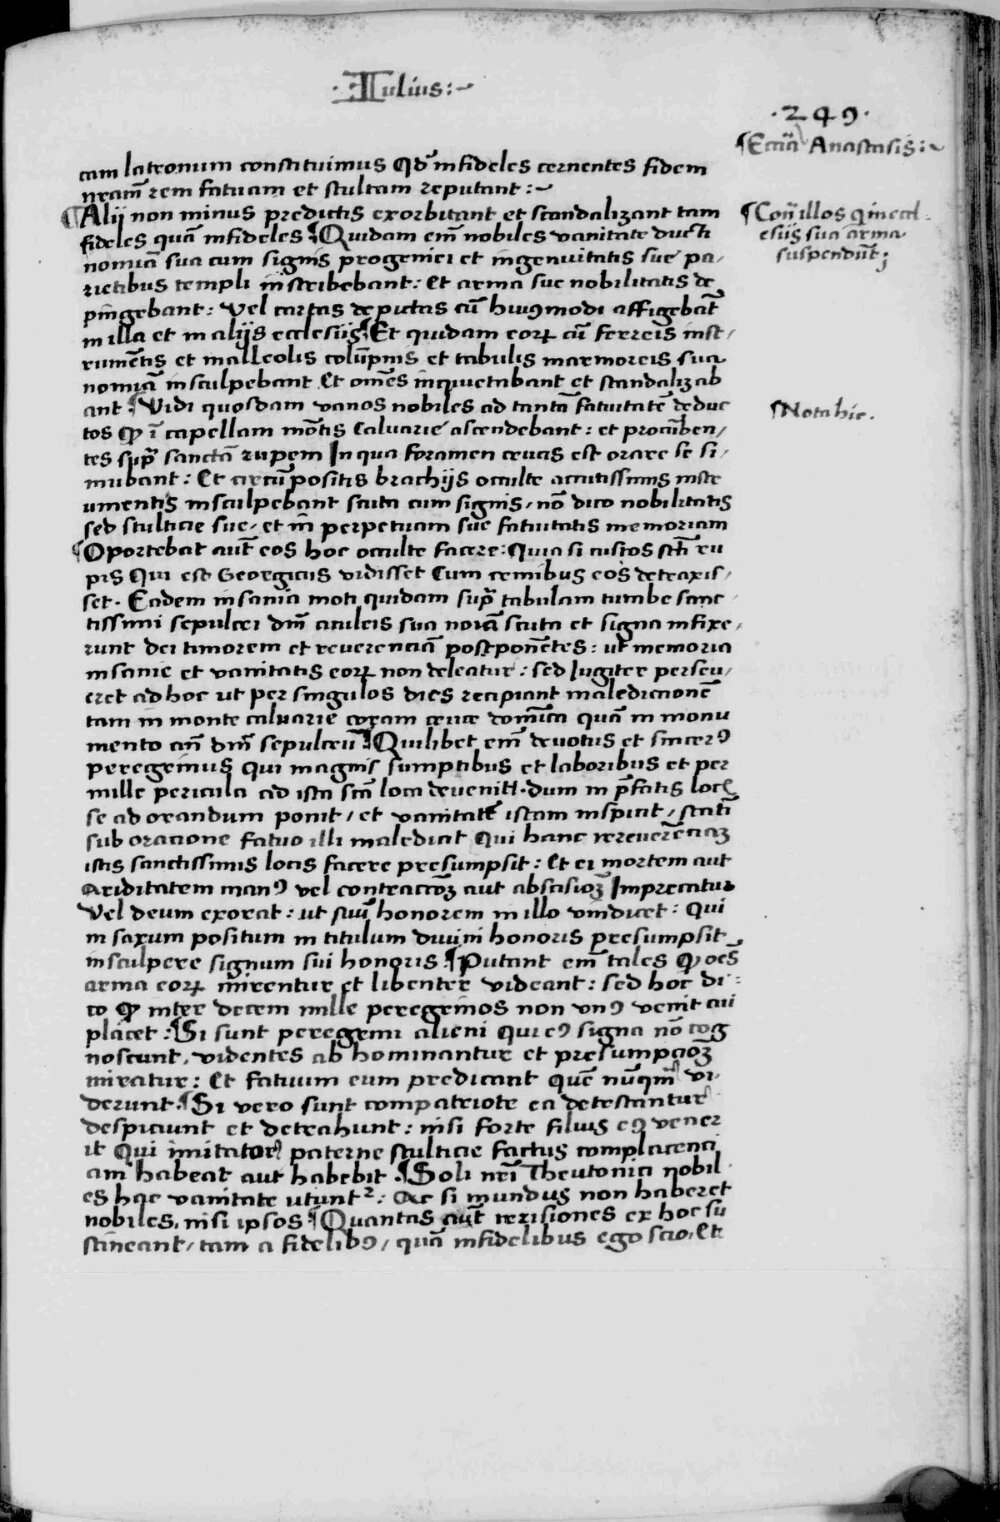 ·Iulius:~
·249·
¶Eccl̄ia Anastasis:~
cam latronum constituimus Qd̄ infideles cernentes fidem
nr̄am rem fatuam et stultam reputant:~
¶Alij non minus predictis exorbitant et scandalizant tam
fideles quā infideles ¶Quidam em̄ nobiles vanitate ducti
nomiā sua cum signis progeniei et ingenuitatis sue pa/
rietibus templi inscribebant: Et arma sue nobilitatis de
pingebant: Vel cartas depictas cū huiꝯmodi affigebāt
in illa et in alijs ecclesijs ¶Et quidam eoꝝ cū ferreis inst/
rumētis et malleolis colūpnis et tabulis marmoreis sua
nomiā insculpebant Et om̄es inquietabant et scandalizab
ant ¶Vidi quosdam vanos nobiles ad tantā fatuitatē deduc
tos ꝙ ī capellam mōtis Calvarie ascendebant: et procūben/
tes sup̄ sanctā rupem In qua foramen crucis est orare se si/
mulabant: Et circūpositis brachijs occulte acutissimis instr
umentis insculpebant scuta cum signis/ nō dico nobilitatis
sed stulticie sue/ et in perpetuam sue fatuitatis memoriam
¶Oportebat aut̄ eos hoc occulte facere: Quia si custos sct̄i ru
pis Qui est Georgicus vidisset Cum crinibus eos detraxis/
set. Eadem insania moti quidam sup̄ tabulam tumbe sanc/
tissimi sepulcri dn̄i aculeis sua noīa scuta et signa infixe/
runt dei timorem et reverenciā postponētes: ut memoria
insanie et vanitatis eoꝝ non deleatur: sed Jugiter persev/
eret ad hoc ut per singulos dies recipiant maledictionē
tam in monte calvarie coram cruce dominica quā in monu
mento an̄ dn̄i sepulcrū ¶Quilibet em̄ devotus et sincerꝯ
peregrinus qui magnis sumptibus et laboribus et per
mille pericula ad ista sc̄a loca devenit. dum in p̄fatis locis
se ad orandum ponit/ et vanitatē istam inspicit/ statī
sub oracione fatuo illi maledicit Qui hanc irreverēciaꝫ
istis sanctissimis locis facere presumpsit: Et ei mortem aut
ariditatem manꝯ vel contractōꝫ aut abscisioꝫ Imprecatur
Vel deum exorat: ut suū honorem in illo vindicet: Qui
in saxum positum in titulum divini honoris presumpsit
insculpere signum sui honoris ¶Putant em̄ tales ꝙ oēs
arma eoꝝ mirentur et libenter videant: sed hoc di:
co ꝙ inter decem mille peregrinos non vnꝯ venit cui
placet: ¶Si sunt peregrini alieni qui eꝯ signa nō cog
noscunt, videntes abhominantur et presumpcioꝫ
mirātur: Et fatuum eum predicant quē nūqm̄ vi/
derunt. ¶Si vero sunt compatriote ea detestantur
despiciunt et detrahunt: nisi forte filius eꝯ vener
it Qui imitator paterne stulticie factus complacenci
am habeat aut habebit. ¶Soli nr̄i Theutonici nobil
es hac vanitate utunt2: Ac si mundus non haberet
nobiles, nisi ipsos ¶Quantas aut̄ irrisiones ex hoc su
stineant/ tam a fidelibꝯ/ quā infidelibus ego scio. Et
¶Con̄ illos q̄ in eccl=
esijs sua arma
suspendūt;
¶Nota hic.